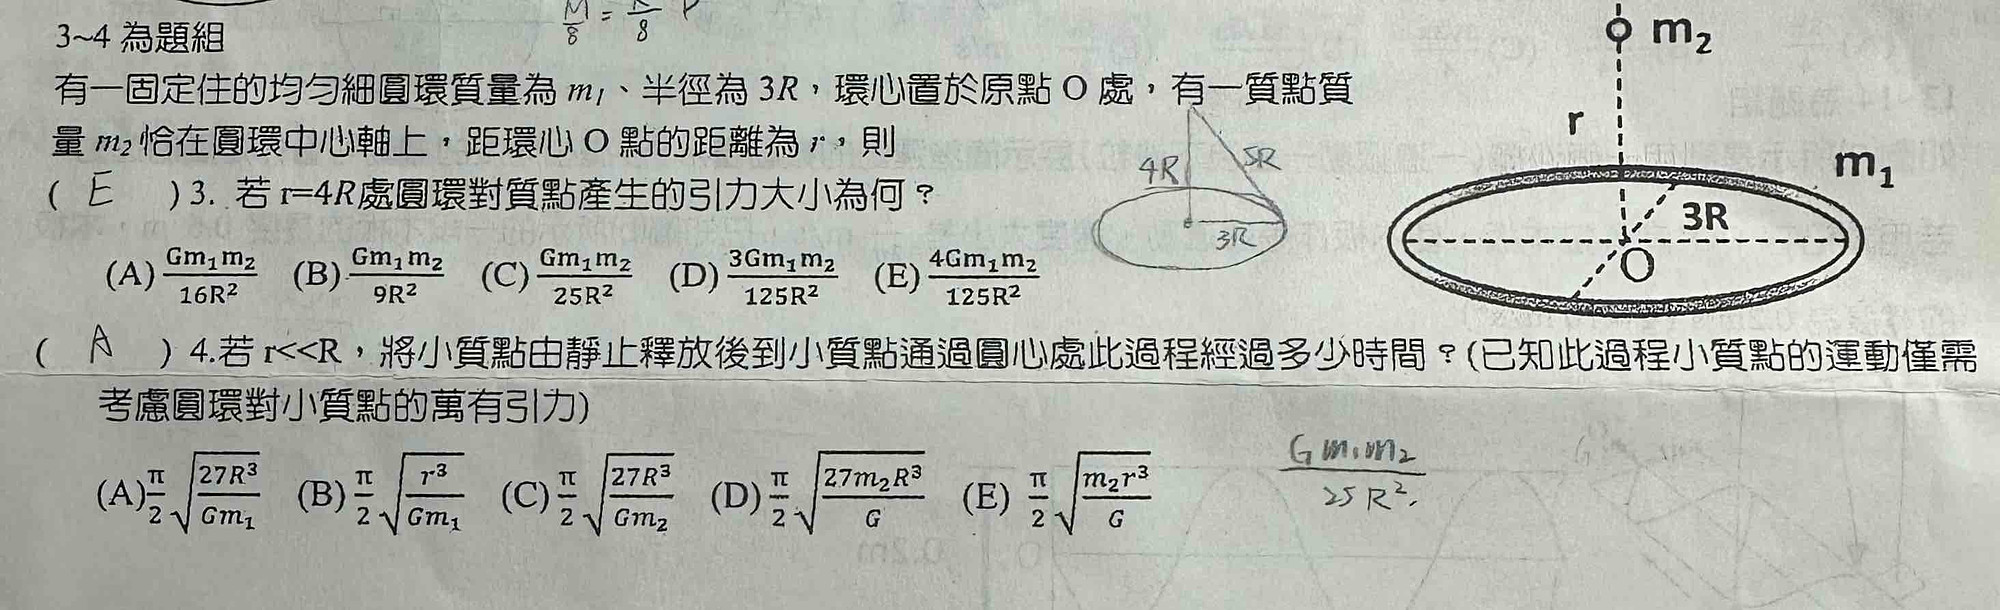 M/8 = R/8
3~4 為題組
有一固定住的均勻細圓環質量為 m₁、半徑為 3R，環心置於原點 O 處，有一質點質
量 m₂ 恰在圓環中心軸上，距環心 O 點的距離為 r，則
( E ) 3. 若 r=4R處圓環對質點產生的引力大小為何？
(A) Gm₁m₂/16R² (B) Gm₁m₂/9R² (C) Gm₁m₂/25R² (D) 3Gm₁m₂/125R² (E) 4Gm₁m₂/125R²
4R 5R
3R
m₂
r
m₁
3R
O
( A ) 4.若 r<<R，將小質點由靜止釋放後到小質點通過圓心處此過程經過多少時間？(已知此過程小質點的運動僅需
考慮圓環對小質點的萬有引力)
(A) π/2 √(27R³/Gm₁) (B) π/2 √(r³/Gm₁) (C) π/2 √(27R³/Gm₂) (D) π/2 √(27m₂R³/G) (E) π/2 √(m₂r³/G)
Gm₁m₂/25R²